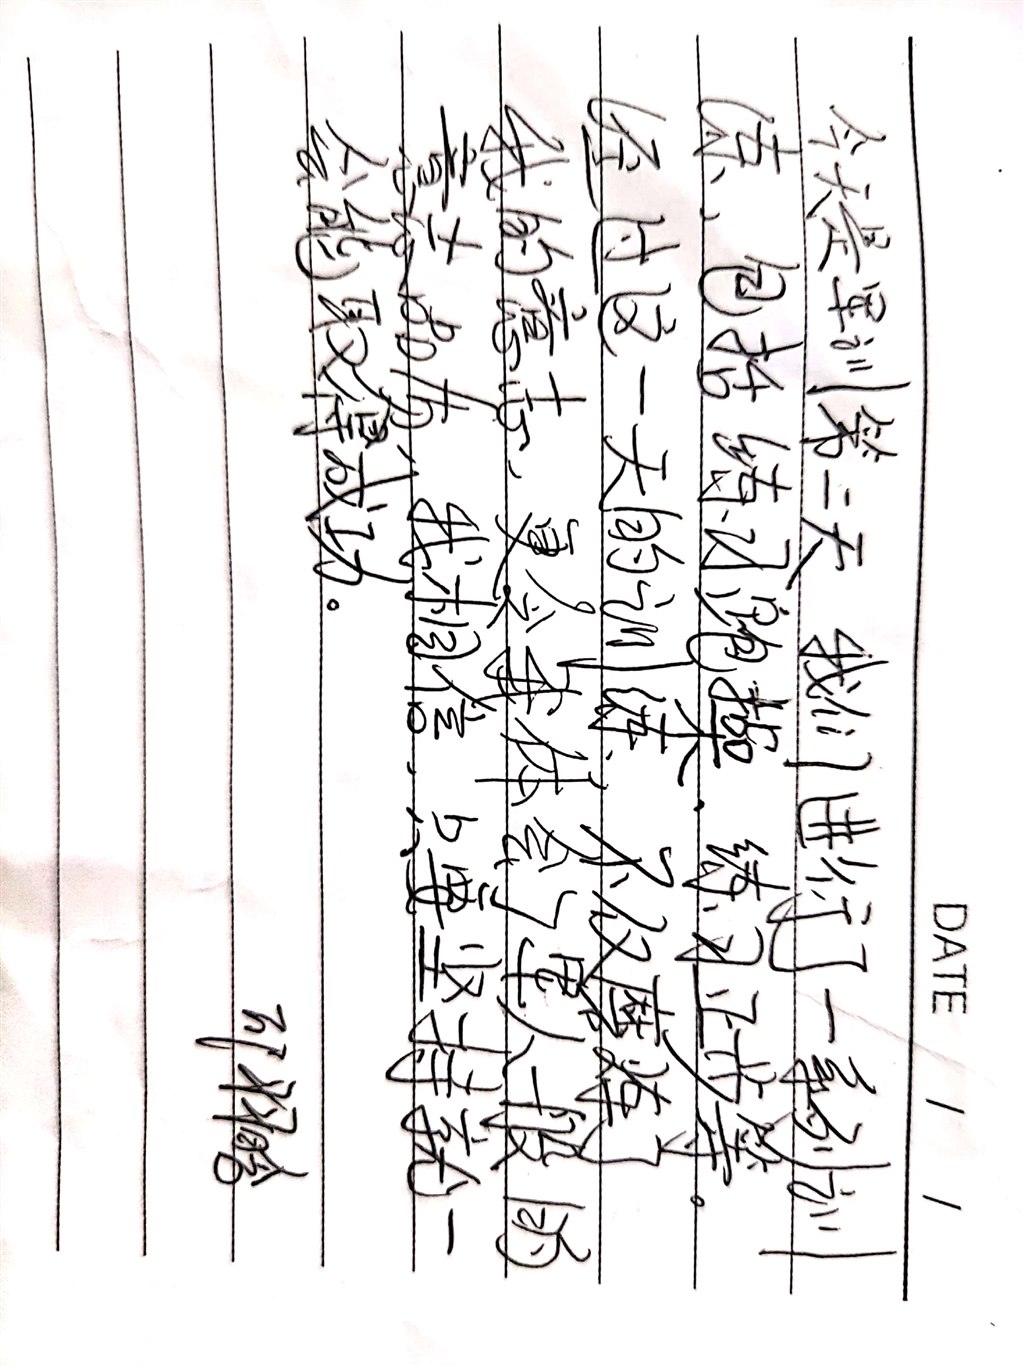 DATE / /
今天是军训第二天 我们进行了一系列训
练、包括练习跑操. 练习正步等。
经过这一天的训练, 不仅磨炼了
我的意志、更令本体会了军人一般的
意志的力 我相信、只要坚持就一
会能取得成功。